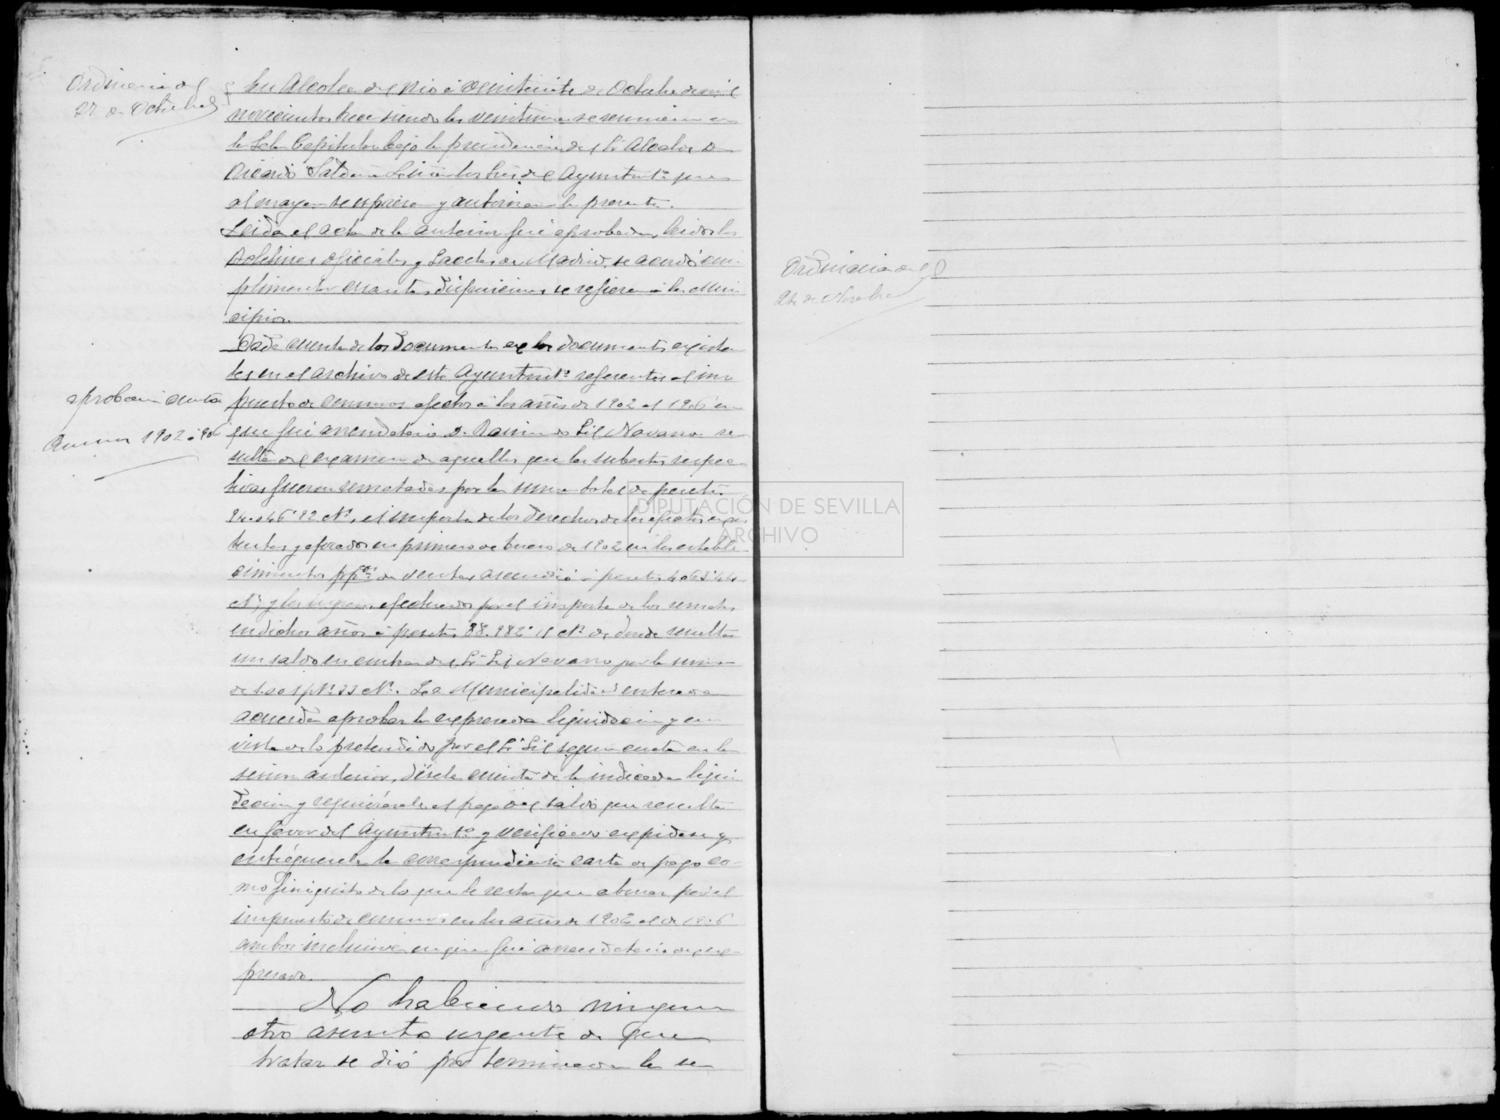 Ordinaria del
27 de Octubre
En Alcolea del Rio á veintisiete de Octubre de mil
novecientos trece siendo las veintiuna se reunieron en
la Sala Capitular bajo la presidencia del Sr Alcalde D.
Ricardo los Sres del Ayuntmto. que
al margen se expresan y autorizan la presente.
Leida el acta de la anterior fué aprobada, leidos los
Boletines oficiales y Gacetas de Madrid, se acordó cum-
plimentar cuantas disposiciones se refieran á los Muni-
cipios.
Dada cuenta de los documentos existen-
tes en el archivo de este Ayuntmto. referentes al im-
aprobación cuenta
puesto de consumos afectos á los años de 1902 al 1906 en
Consumos 1902 á 906
que fué arrendatario D. Ramon Gil Navarro re-
sulta del examen de aquellos que las subastas respec-
tivas fueron rematadas por la suma total de pesetas
el importe de los derechos de las especies exis-
tentes y aforadas en primero de Enero de 1902 en los estable-
cimientos de ventas ascendió á pesetas
y los ingresos efectuados por el importe de los remates
en dichos años á pesetas de donde resulta
un saldo en contra del Sr Gil Navarro por la suma
de La Municipalidad enterada
acuerda aprobar la expresada liquidacion y en
vista de lo pretendido por el Sr Gil segun consta en la
sesion anterior, désele cuenta de la indicada liqui-
dacion y requiérasele al pago del saldo que resulta
en favor del Ayuntmto. y verificado expidase y
entréguesele la correspondiente carta de pago co-
mo finiquito de lo que le resta que abonar por el
impuesto de consumos en los años de 1902 al de 1906
ambos inclusive en que fué arrendatario el ex-
presado.
No habiendo ningun
otro asunto urgente de que
tratar se dió por terminada la se
Ordinaria del
de Novbre
DIPUTACIÓN DE SEVILLA
ARCHIVO